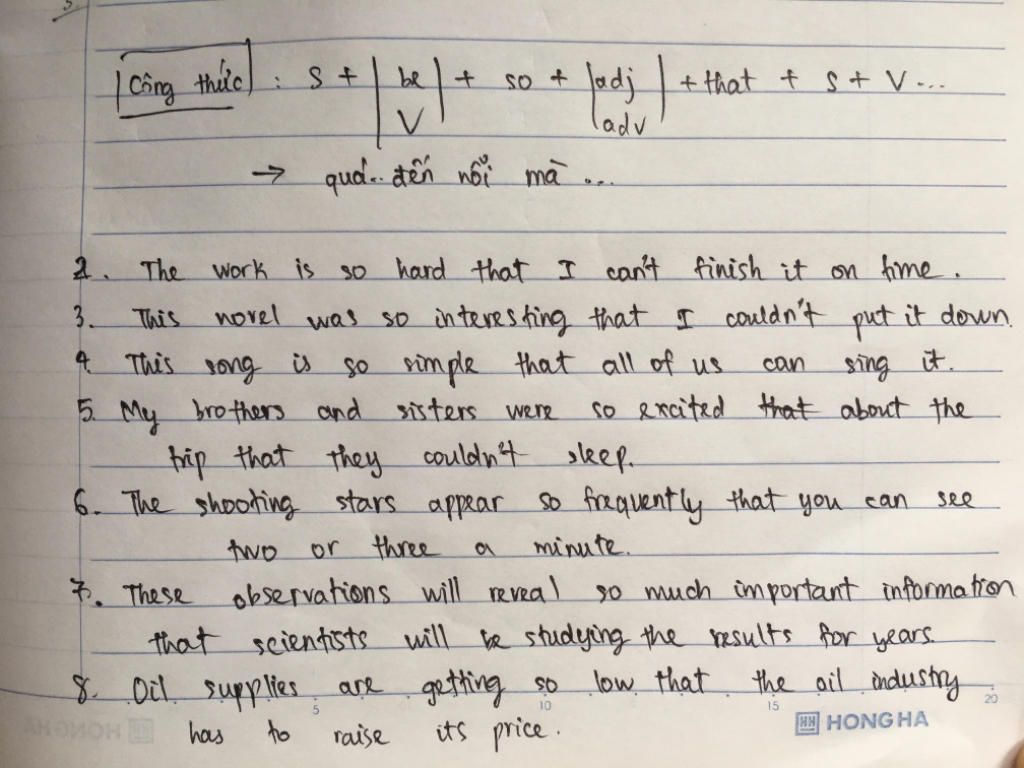 3.
Công thức : S + | be | + so + | adj | + that + S + V...
V adv
→ quá.. đến nỗi mà ...
2. The work is so hard that I can't finish it on time.
3. This novel was so interesting that I couldn't put it down.
4. This song is so simple that all of us can sing it.
5. My brothers and sisters were so excited that about the
trip that they couldn't sleep.
6. The shooting stars appear so frequently that you can see
two or three a minute.
7. These observations will reveal so much important information
that scientists will be studying the results for years.
8. Oil supplies are getting so low that the oil industry
5 10 15 20
has to raise its price.
HH HONG HA